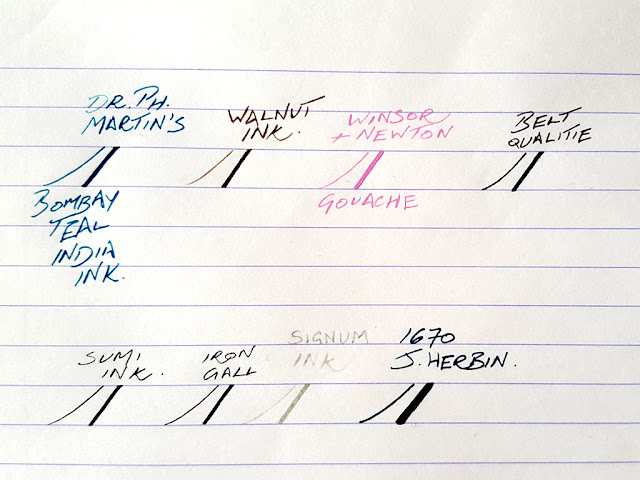 DR. PH.
MARTIN'S
BOMBAY
TEAL
INDIA
INK.
WALNUT
INK.
WINSOR
+ NEWTON
GOUACHE
BELT
QUALITIE
SUMI
INK.
IRON
GALL
SIGNUM
INK
1670
J. HERBIN.